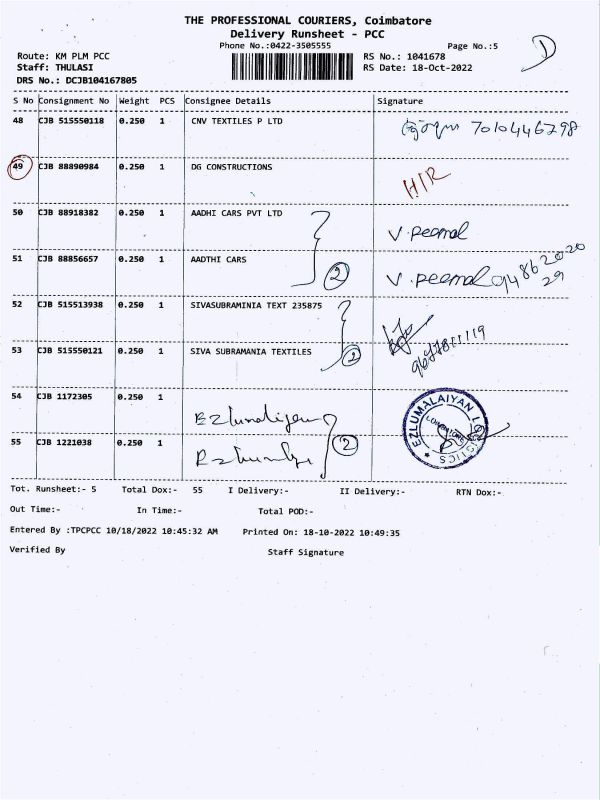 THE PROFESSIONAL COURIERS, Coimbatore
Delivery Runsheet - PCC
Phone No.:0422-3505555
Page No.:5
Route: KM PLM PCC
RS No.: 1041678
Staff: THULASI
RS Date: 18-Oct-2022
DRS No.: DCJB104167805
S No Consignment No Weight PCS Consignee Details Signature
48 CJB 515550118 0.250 1 CNV TEXTILES P LTD 7010446798
49 CJB 88890984 0.250 1 DG CONSTRUCTIONS H/R
50 CJB 88918382 0.250 1 AADHI CARS PVT LTD V. peemal
51 CJB 88856657 0.250 1 AADTHI CARS 2 V. peemal 9486202029
52 CJB 515513938 0.250 1 SIVASUBRAMINIA TEXT 235875
53 CJB 515550121 0.250 1 SIVA SUBRAMANIA TEXTILES 2 9677811119
54 CJB 1172305 0.250 1 EZLUMALAIYAN LOGISTICS
55 CJB 1221038 0.250 1 2
Tot. Runsheet:- 5 Total Dox:- 55 I Delivery:- II Delivery:- RTN Dox:-
Out Time:- In Time:- Total POD:-
Entered By :TPCPCC 10/18/2022 10:45:32 AM Printed On: 18-10-2022 10:49:35
Verified By Staff Signature